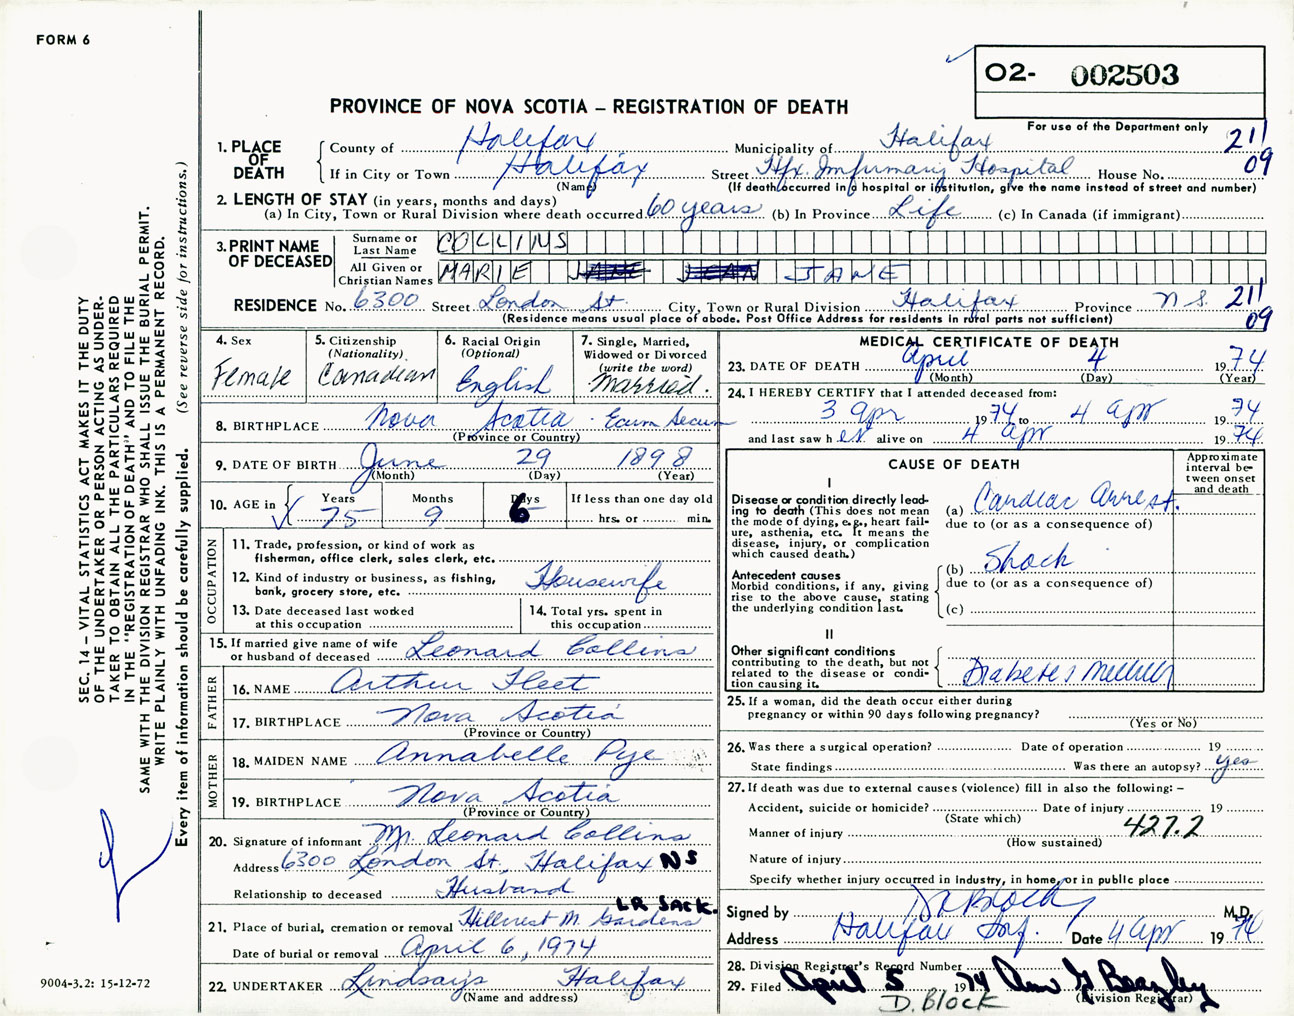 FORM 6
O2- 002503
PROVINCE OF NOVA SCOTIA – REGISTRATION OF DEATH
For use of the Department only
1. PLACE OF DEATH
County of Halifax Municipality of Halifax 211
If in City or Town Halifax Street Hfx. Infirmary Hospital House No. 09
(Name) (If death occurred in a hospital or institution, give the name instead of street and number)
2. LENGTH OF STAY (in years, months and days)
(a) In City, Town or Rural Division where death occurred 60 years (b) In Province Life (c) In Canada (if immigrant)
3. PRINT NAME OF DECEASED
Surname or Last Name COLLINS
All Given or Christian Names MARIE JANE JEAN JANE
RESIDENCE No. 6300 Street London St. City, Town or Rural Division Halifax Province N S. 211
(Residence means usual place of abode. Post Office Address for residents in rural parts not sufficient) 09
4. Sex
Female
5. Citizenship
(Nationality)
Canadian
6. Racial Origin
(Optional)
English
7. Single, Married,
Widowed or Divorced
(write the word)
Married.
8. BIRTHPLACE Nova Scotia - Ecum Secum
(Province or Country)
9. DATE OF BIRTH June 29 1898
(Month) (Day) (Year)
10. AGE in Years Months Days If less than one day old
75 9 6 hrs. or min.
OCCUPATION
11. Trade, profession, or kind of work as
fisherman, office clerk, sales clerk, etc.
12. Kind of industry or business, as fishing, Housewife
bank, grocery store, etc.
13. Date deceased last worked
at this occupation
14. Total yrs. spent in
this occupation
15. If married give name of wife
or husband of deceased Leonard Collins
FATHER
16. NAME Arthur Fleet
17. BIRTHPLACE Nova Scotia
(Province or Country)
MOTHER
18. MAIDEN NAME Annabelle Pye
19. BIRTHPLACE Nova Scotia
(Province or Country)
20. Signature of informant Mr. Leonard Collins
Address 6300 London St., Halifax NS
Relationship to deceased Husband
LR SACK.
21. Place of burial, cremation or removal Hillcrest M. Gardens
Date of burial or removal April 6, 1974
22. UNDERTAKER Lindsay's Halifax
(Name and address)
MEDICAL CERTIFICATE OF DEATH
23. DATE OF DEATH April 4 1974
(Month) (Day) (Year)
24. I HEREBY CERTIFY that I attended deceased from:
3 Apr 1974 to 4 Apr 1974
and last saw her alive on 4 Apr 1974
CAUSE OF DEATH
Approximate
interval be-
tween onset
and death
I
Disease or condition directly lead-
ing to death (This does not mean
the mode of dying, e.g., heart fail-
ure, asthenia, etc. It means the
disease, injury, or complication
which caused death.)
(a) Cardiac Arrest.
due to (or as a consequence of)
(b) Shock
due to (or as a consequence of)
(c)
Antecedent causes
Morbid conditions, if any, giving
rise to the above cause, stating
the underlying condition last.
II
Other significant conditions
contributing to the death, but not
related to the disease or condi-
tion causing it.
Diabetes Mellitus
25. If a woman, did the death occur either during
pregnancy or within 90 days following pregnancy?
(Yes or No)
26. Was there a surgical operation? Date of operation 19
State findings Was there an autopsy? yes
27. If death was due to external causes (violence) fill in also the following: –
Accident, suicide or homicide? Date of injury 19
(State which)
Manner of injury 427.2
(How sustained)
Nature of injury
Specify whether injury occurred in industry, in home, or in public place
Signed by D A Block M.D.
Address Halifax Inf. Date 4 Apr 1974
28. Division Registrar's Record Number
29. Filed April 5 1974 Ann G Beazley
(Division Registrar)
D. BLOCK
SEC. 14 – VITAL STATISTICS ACT MAKES IT THE DUTY
OF THE UNDERTAKER OR PERSON ACTING AS UNDER-
TAKER TO OBTAIN ALL THE PARTICULARS REQUIRED
IN THE "REGISTRATION OF DEATH" AND TO FILE THE
SAME WITH THE DIVISION REGISTRAR WHO SHALL ISSUE THE BURIAL PERMIT.
WRITE PLAINLY WITH UNFADING INK. THIS IS A PERMANENT RECORD.
Every item of information should be carefully supplied. (See reverse side for instructions.)
9004-3.2: 15-12-72